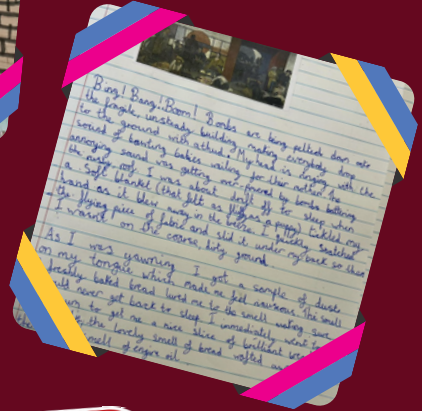 Bing! Bang! Boom! Bombs are being pelted down onto
the fragile, unsteady building making everybody drop
to the ground with a thud. My head is ringing with the
sound of bawling babies waiting for their mother. The
annoying sound was getting over-powered by bombs battering
the nearby I was about drift off to sleep when
a soft blanket (that felt as as puppy) tickled my
hand as it blew away in the breeze. I quickly snatched
the flying piece of fabric and slid it under my back so then
I wasn't on the coarse, ground.
As I was yawning I got a sample of dust
on my tongue which made me feel nauseous. The smell
freshly baked bread lured me to the smell, making sure
never get back to sleep. I immediately went
to get me a nice slice of brilliant
the lovely smell of bread wafted
smell of engine oil